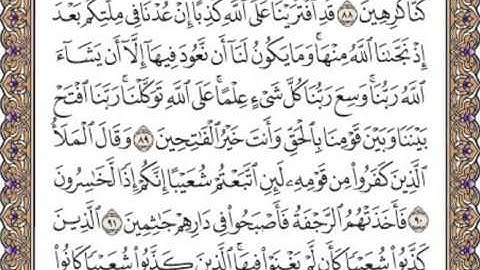 كُنَّا كَٰرِهِينَ ٨٨ قَدِ ٱفْتَرَيْنَا عَلَى ٱللَّهِ كَذِبًا إِنْ عُدْنَا فِي مِلَّتِكُم بَعْدَ
إِذْ نَجَّىٰنَا ٱللَّهُ مِنْهَا ۚ وَمَا يَكُونُ لَنَآ أَن نَّعُودَ فِيهَآ إِلَّآ أَن يَشَآءَ
ٱللَّهُ رَبُّنَا ۚ وَسِعَ رَبُّنَا كُلَّ شَيْءٍ عِلْمًا ۚ عَلَى ٱللَّهِ تَوَكَّلْنَا ۚ رَبَّنَا ٱفْتَحْ
بَيْنَنَا وَبَيْنَ قَوْمِنَا بِٱلْحَقِّ وَأَنتَ خَيْرُ ٱلْفَٰتِحِينَ ٨٩ وَقَالَ ٱلْمَلَأُ
ٱلَّذِينَ كَفَرُوا۟ مِن قَوْمِهِۦ لَئِنِ ٱتَّبَعْتُمْ شُعَيْبًا إِنَّكُمْ إِذًا لَّخَٰسِرُونَ
٩٠ فَأَخَذَتْهُمُ ٱلرَّجْفَةُ فَأَصْبَحُوا۟ فِي دَارِهِمْ جَٰثِمِينَ ٩١ ٱلَّذِينَ
كَذَّبُوا۟ شُعَيْبًا كَأَن لَّمْ يَغْنَوْا۟ فِيهَا ۚ ٱلَّذِينَ كَذَّبُوا۟ شُعَيْبًا كَانُوا۟